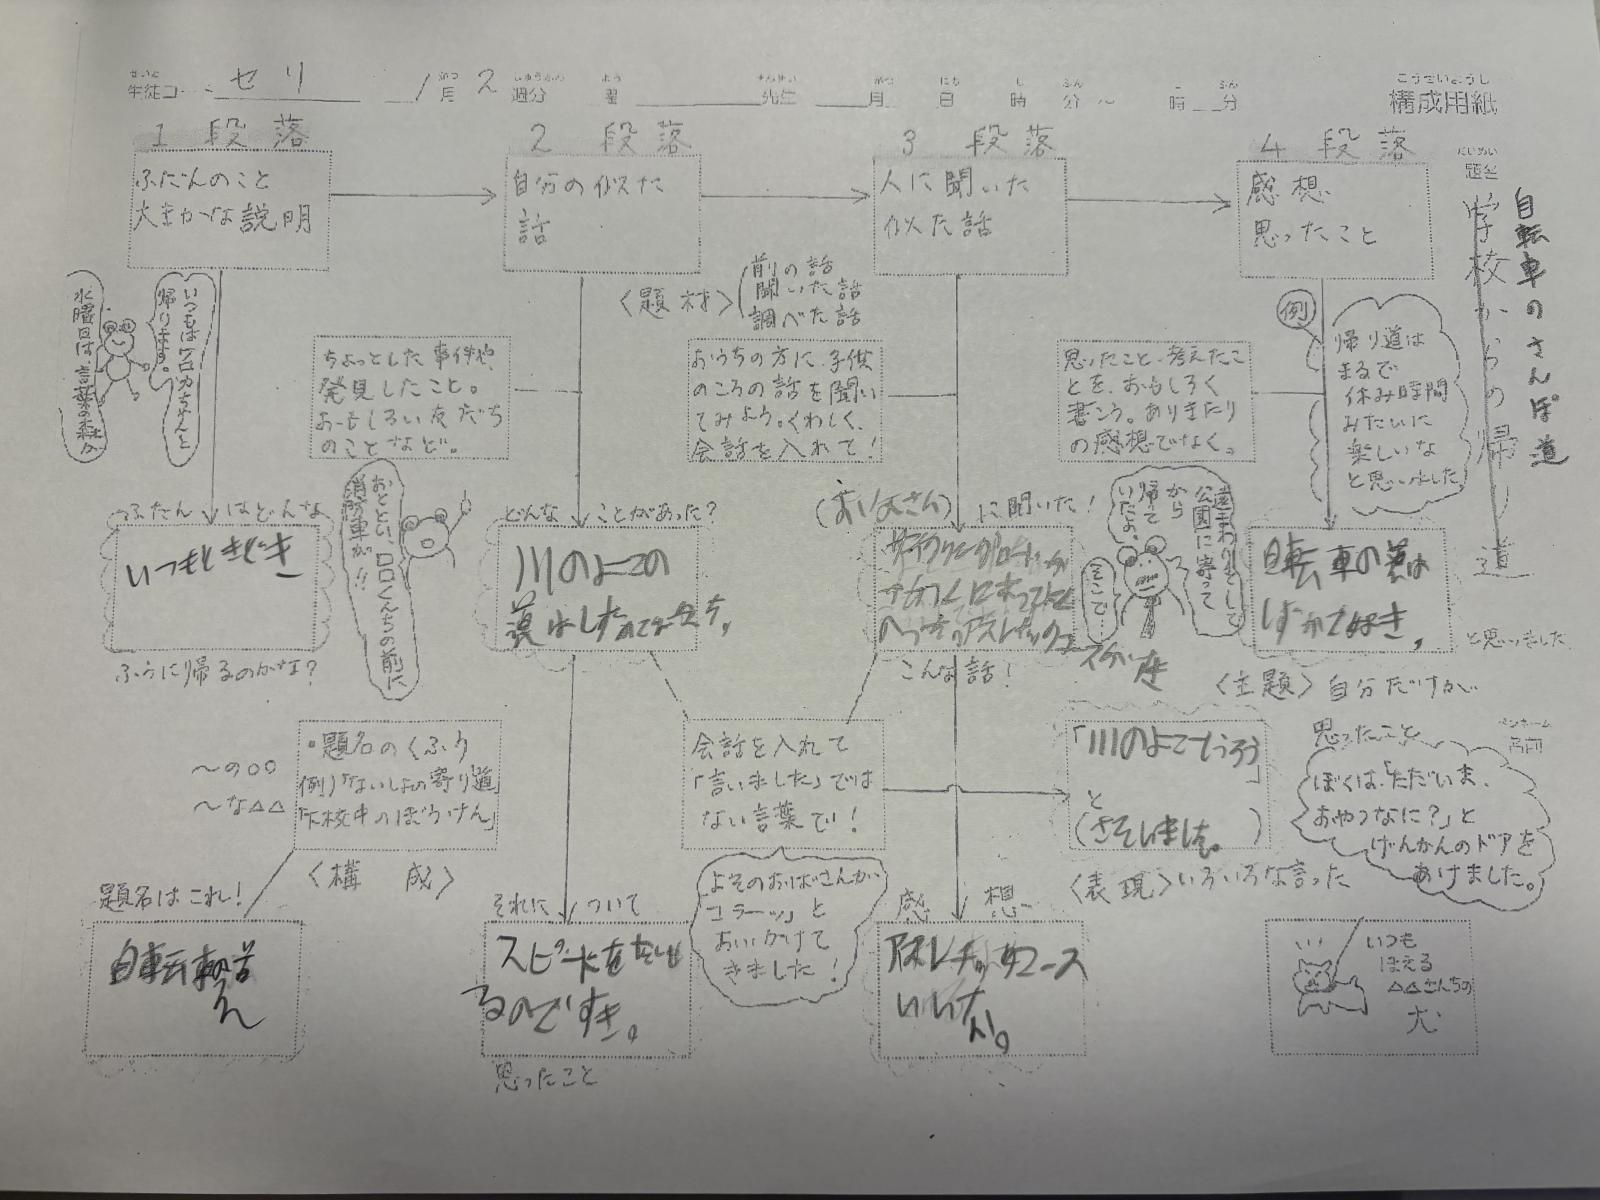 せいと
生徒コード
セリ
1月 2週分 曜 先生 月 日 時 分～ 時 分
こうせいようし
構成用紙
1 段落
2 段落
3 段落
4 段落
ふだんのこと
大まかな説明
自分の似た
話
人に聞いた
似た話
感想
思ったこと
だいめい
題名
学校からの帰り道
自転車のさんぽ道
〈題材〉
前の話
聞いた話
調べた話
いつもは口口力ちゃんと
帰ります。
水曜日は、言葉の森か
ちょっとした事件や、
発見したこと。
おもしろい友だち
のことなど。
おうちの方に、子供
のころの話を聞い
てみよう。くわしく、
会話を入れて！
思ったこと、考えたこ
とを、おもしろく
書こう。ありきたり
の感想でなく。
例
帰り道は
まるで
休み時間
みたいに
楽しいな
と思いました
ふだん はどんな
いつもどきどき
ふうに帰るのかな？
おととい、口口くんちの前に
消防車が！！
どんな ことがあった？
川のよこの
(お父さん) に聞いた！
こんな話！
遠まわりして
公園に寄って
から
帰って
いたよ。
そこで…
自転車の道は
好き。
と思いました
〈主題〉自分だけが
思ったこと
・題名のくふう
例)「ないしょの寄り道」
「下校中のぼうけん」
～の○○
～な△△
〈構 成〉
会話を入れて
「言いました」では
ない言葉で！
「川のよこでうろう」
と
(さそいました。)
〈表現〉いろいろな言った
ペンネーム
ぼくは、「ただいま、
おやつなに？」と
げんかんのドアを
あけました。
題名はこれ！
それに ついて
スピードを
るのですき。
思ったこと
よそのおばさんが
「コラーッ」と
おいかけて
きました！
感 想
アスレチックコース
いいな。
いつも
ほえる
△△さんちの
犬